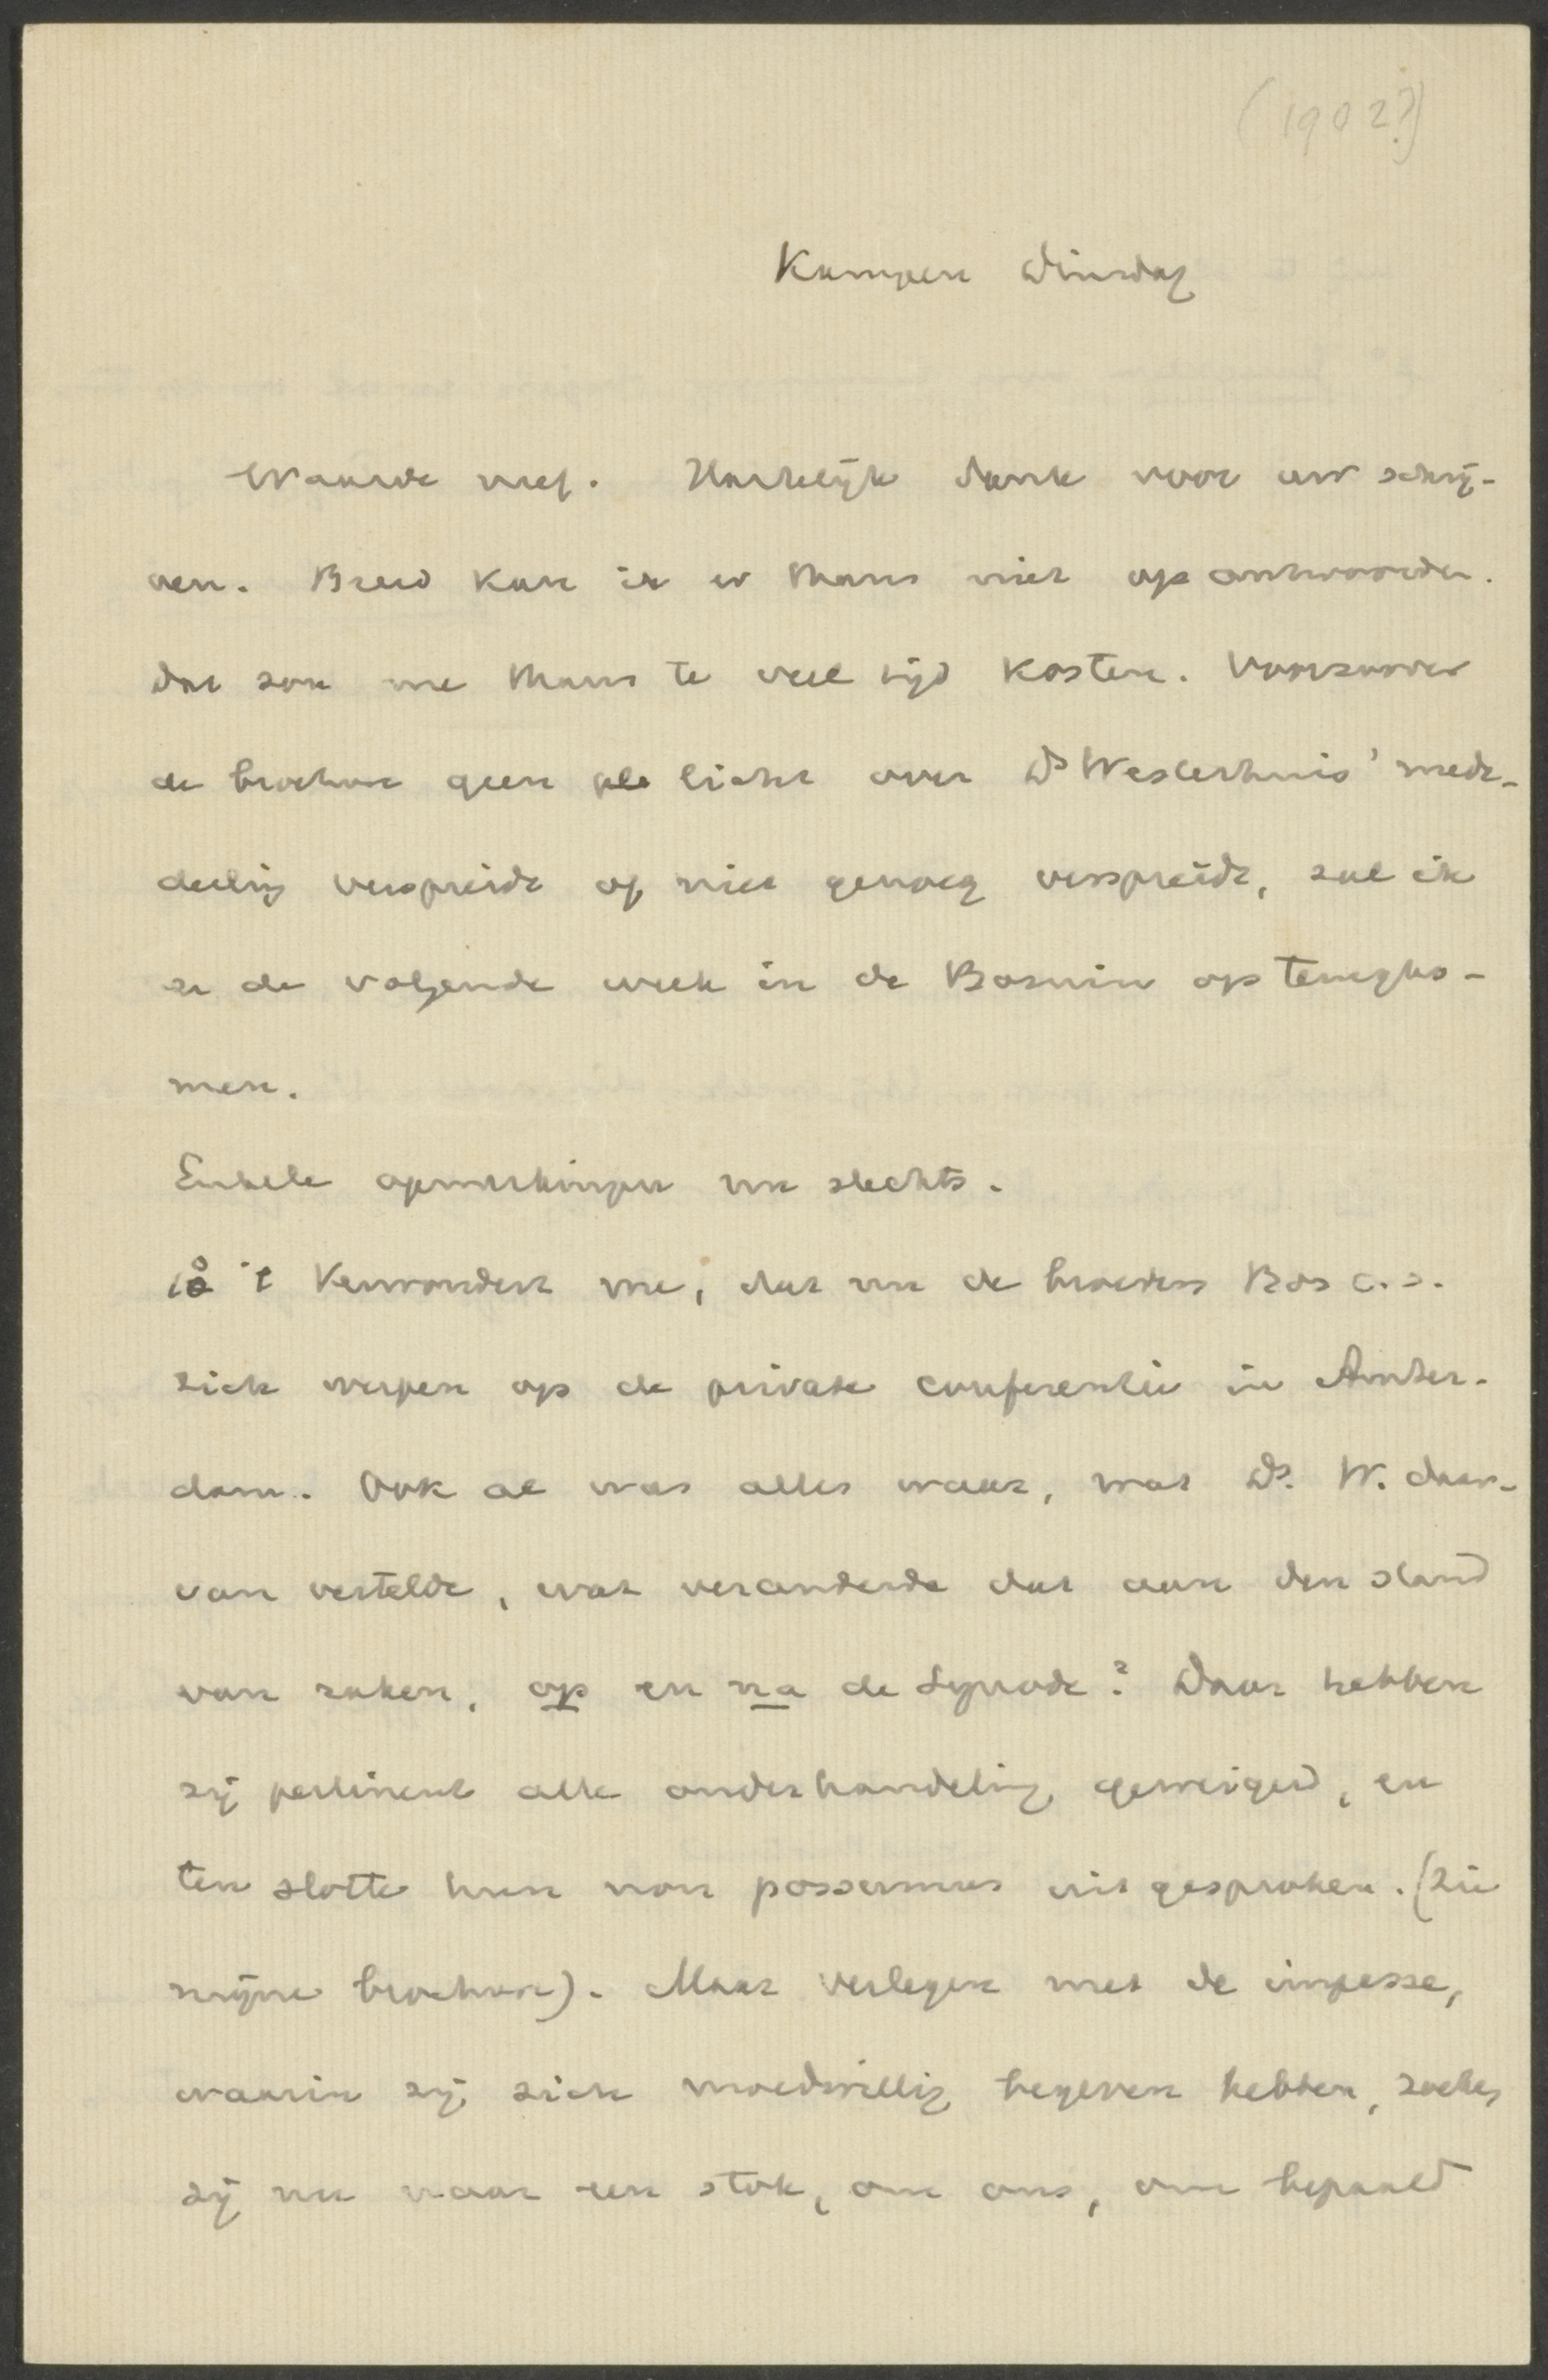 (1902?)
Kampen Dinsdag
Waarde neef. Hartelijk dank voor uw schrij-
ven. Breed kan ik er thans niet op antwoorden.
dat zou me thans te veel tijd kosten. Voorzoover
de brochure geen licht over Ds Westerhuis' mede-
deeling verspreidt of niet genoeg verspreidt, zal ik
er de volgende week in de Bazuin op terugko-
men.
Enkele opmerkingen nu slechts.
1o 't Verwondert me, dat nu de broeders Bos c.s.
zich werpen op de private conferentie in Amster-
dam. Ook al was alles waar, wat Ds. W. daar-
van vertelde, wat veranderde dat aan den stand
van zaken, op en na de Synode? Daar hebben
zij pertinent alle onderhandeling geweigerd, en
ten slotte hun non possumus uitgesproken. (Zie
mijne brochure). Maar verlegen met de impasse,
waarin zij zich moedwillig begeven hebben, zoeken
zij nu naar een stok, om ons, om bepaald